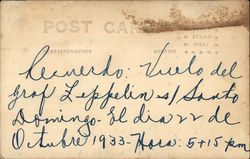 POST CARD
CORRESPONDENCE ADDRESS
STAMP
HERE
Recuerdo: Vuelo del
Graf Zeppelin s/ Santo
Domingo - El dia 22 de
Octubre 1933 - Hora: 5+15 pm